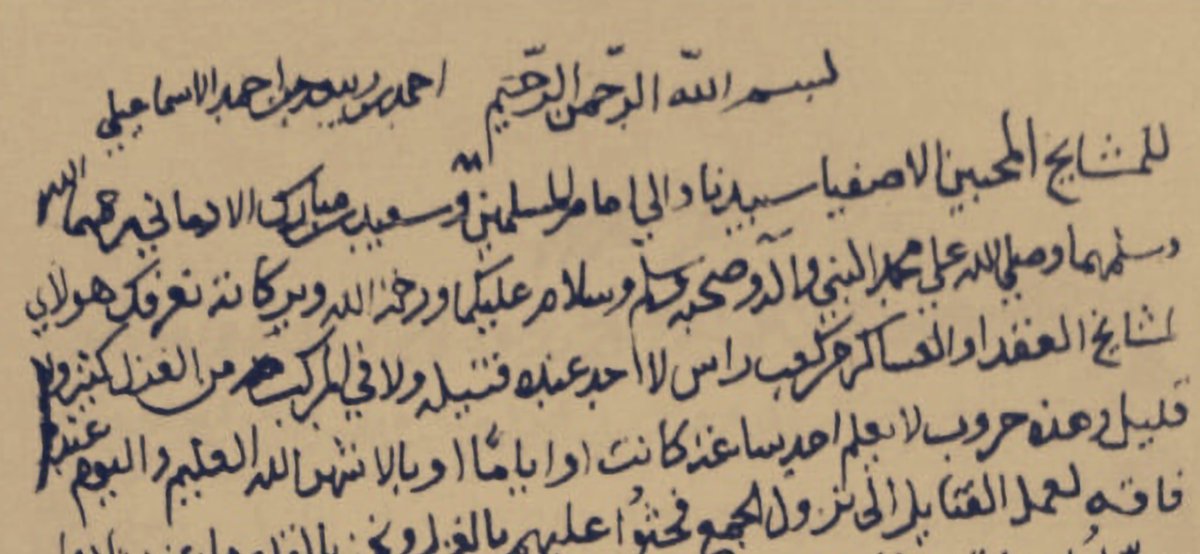 بسم الله الرحمن الرحيم احمد بن احمد الاسماعيلي
للمشايخ المحبين الاصفيا سيدنا والي امام المسلمين وسعيد بن مبارك رحمهما الله
وسلمهما وصلي الله علي محمد النبي واله وصحبه وسلم وسلام عليكما ورحمة الله وبركاته نعرفك هولاي
لمشايخ العقدا والعساكر راس لا احد عنده فتيله ولا في المركب من الغزل كثير ولا
قليل وهذه حروب لا يعلم احد ساعة كانت او اياما او بالاشهر الله العليم واليوم عندهم
فاقه لعمل الفتايل الى نزول الجمع فحثوا عليهم بالغزل